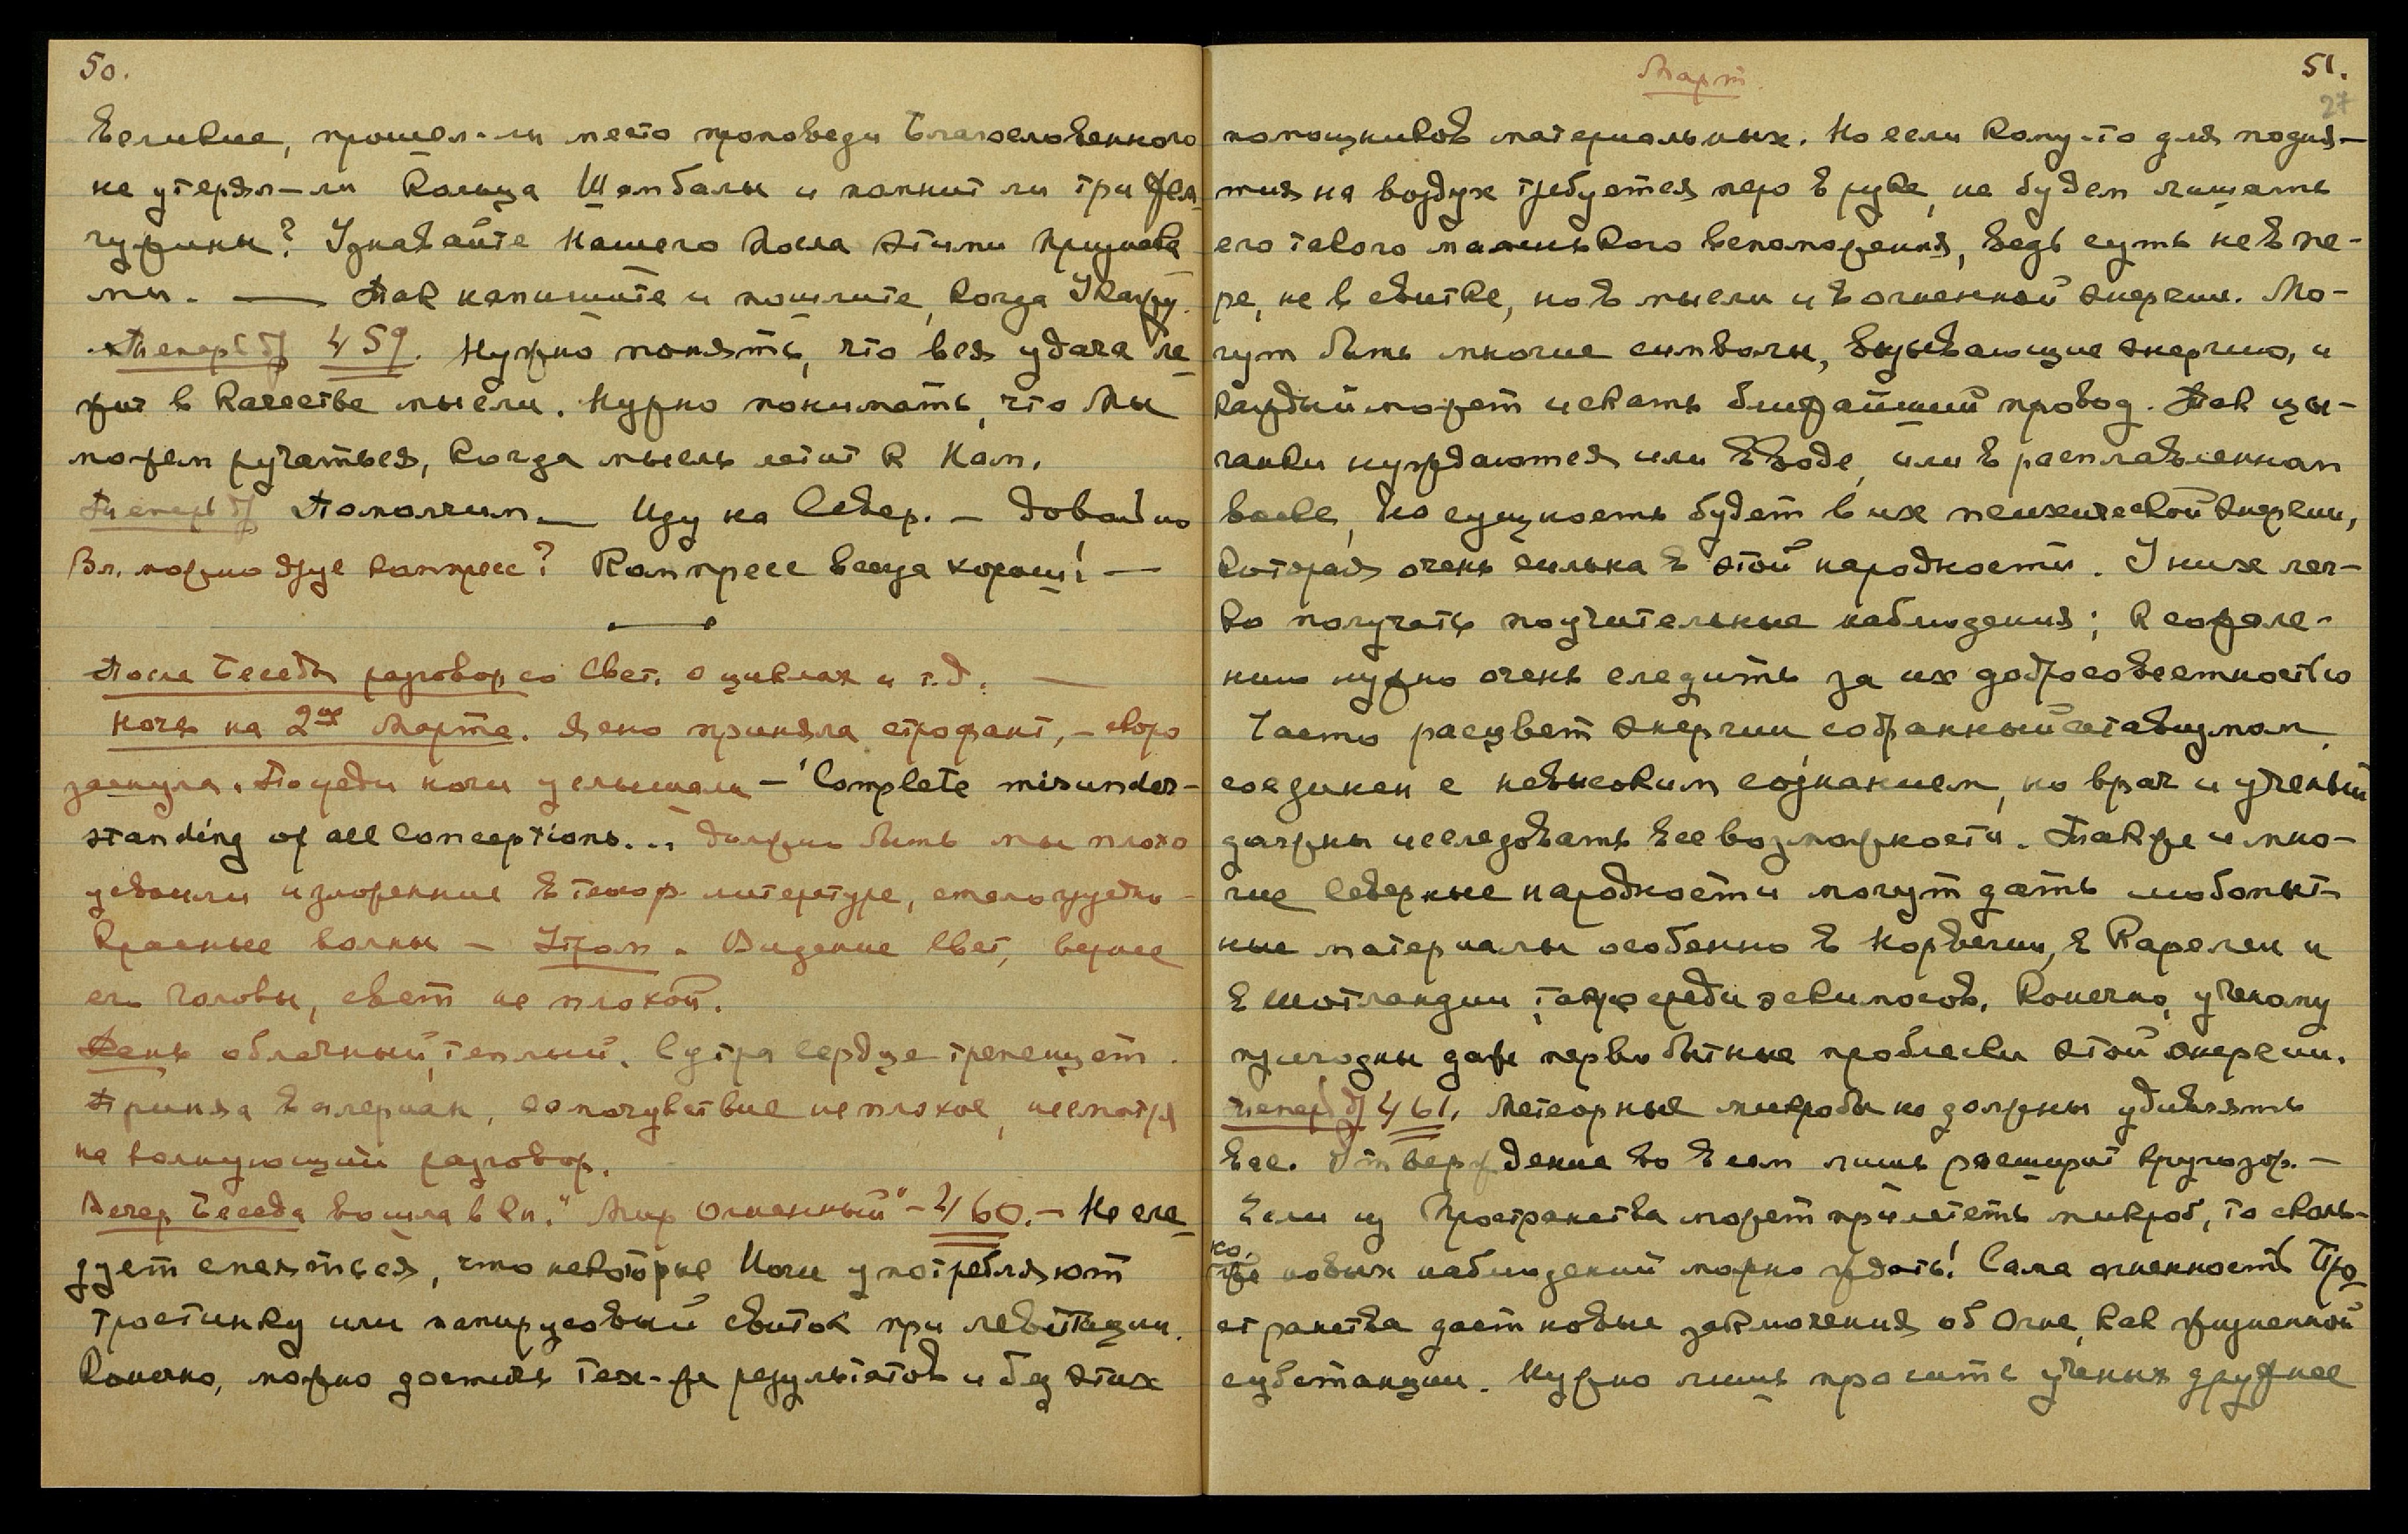 50.
Великие, прошел-ли место проповеди Благословенного
не утерял-ли Кольца Шамбалы и помнит ли три Жем-
чужины? Узнавайте Нашего Посла этими признака-
ми. — Так напишите и пошлите, когда Укажу.
459. Нужно понять, что вся удача ле-
жит в качестве мысли. Нужно понимать, что Мы
можем ручаться, когда мысль летит к Нам.
Помолчим — Иду на Север. — Довольно
Вл. можно компресс? Компресс всегда хорош! —
После Беседы разговор со Свет. о циклах и т.д. —
Ночь на 2ое Марта. Ясно приняла строфант, — скоро
заснула. Посреди ночи услышала — "Complete misunder-
standing of all Conceptions... Должно быть мы плохо
усвоили изложенные в теософ. литературе, стало грустно
Красные волны — Утром. Видение Свет, вернее
его головы, свет не плохой.
День облачный, теплый. С утра сердце трепещет.
Приняла валериан, самочувствие не плохое, несмотря
на волнующий разговор.
Вечер Беседа вошла в Кн. "Мир Огненный" — 460. — Не сле-
дует смеяться, что некоторые Йоги употребляют
тростинку или папирусовый свиток при левитации.
Конечно, можно достичь тех-же результатов и без этих
Март
51.
27
помощников материальных. Но если кому-то для подня-
тия на воздух требуется перо в руке, не будем лишать
его такого маленького вспоможения, ведь суть не в пе-
ре, не в свитке, но в мысли и в огненной энергии. Мо-
гут быть многие символы, вызывающие энергию, и
каждый может искать ближайший провод. Так цы-
ганки нуждаются или в воде, или в расплавленном
воске, но сущность будет в их психической энергии,
которая очень сильна в этой народности. У них лег-
ко получать поучительные наблюдения; к сожале-
нию нужно очень следить за их добросовестностью
Часто расцвет энергии, собранный атавизмом,
соединен с невысоким сознанием, но врач и ученый
должны исследовать все возможности. Также и мно-
гие Северные народности могут дать любопыт-
ные материалы особенно в Норвегии, в Карелии и
в Шотландии, также среди эскимосов. Конечно, ученому
пригодны даже первобытные проблески этой энергии.
461. Метеорные микробы не должны удивлять
вас. Утверждение во всем лишь расширит кругозор. —
Если из Пространства может прилететь микроб, то сколь-
ко новых наблюдений можно ждать! Сама огненность Про-
странства дает новые заключения об Огне, как жизненной
субстанции. Нужно лишь просить ученых дружнее